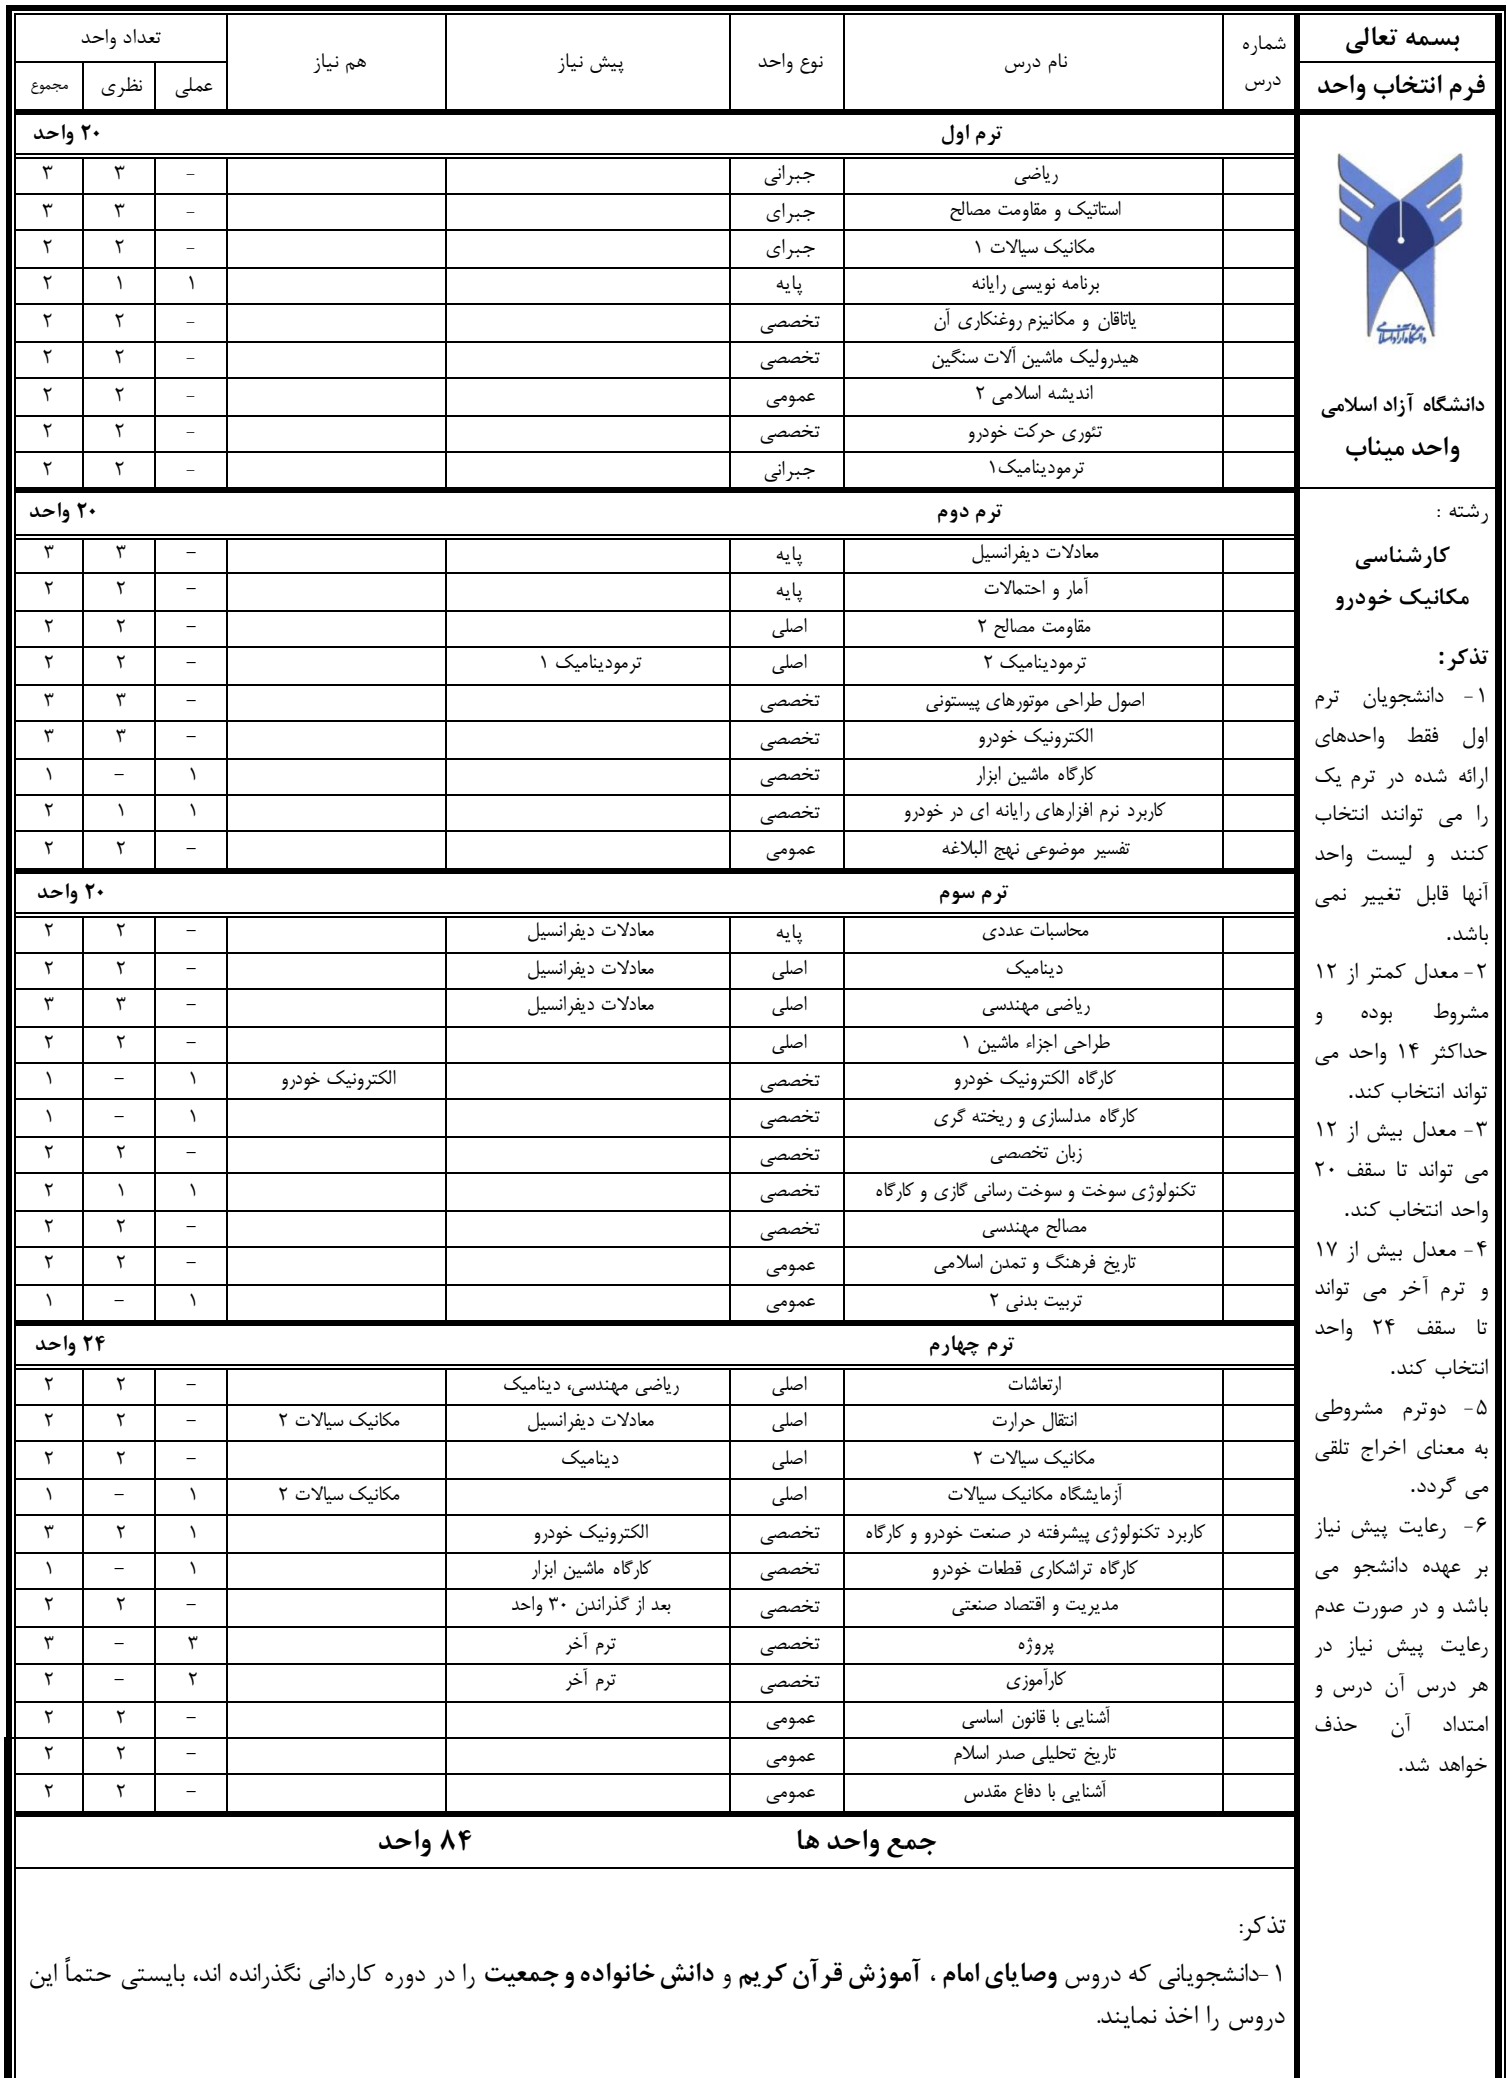 بسمه تعالی
فرم انتخاب واحد
دانشگاه آزاد اسلامی
واحد میناب
رشته :
کارشناسی
مکانیک خودرو
تذکر:
۱- دانشجویان ترم
اول فقط واحدهای
ارائه شده در ترم یک
را می توانند انتخاب
کنند و لیست واحد
آنها قابل تغییر نمی
باشد.
۲- معدل کمتر از ۱۲
مشروط بوده و
حداکثر ۱۴ واحد می
تواند انتخاب کند.
۳- معدل بیش از ۱۲
می تواند تا سقف ۲۰
واحد انتخاب کند.
۴- معدل بیش از ۱۷
و ترم آخر می تواند
تا سقف ۲۴ واحد
انتخاب کند.
۵- دوترم مشروطی
به معنای اخراج تلقی
می گردد.
۶- رعایت پیش نیاز
بر عهده دانشجو می
باشد و در صورت عدم
رعایت پیش نیاز در
هر درس آن درس و
امتداد آن حذف
خواهد شد.
شماره درس نام درس نوع واحد پیش نیاز هم نیاز تعداد واحد
عملی نظری مجموع
ترم اول ۲۰ واحد
ریاضی جبرانی - ۳ ۳
استاتیک و مقاومت مصالح جبرای - ۳ ۳
مکانیک سیالات ۱ جبرای - ۲ ۲
برنامه نویسی رایانه پایه ۱ ۱ ۲
یاتاقان و مکانیزم روغنکاری آن تخصصی - ۲ ۲
هیدرولیک ماشین آلات سنگین تخصصی - ۲ ۲
اندیشه اسلامی ۲ عمومی - ۲ ۲
تئوری حرکت خودرو تخصصی - ۲ ۲
ترمودینامیک۱ جبرانی - ۲ ۲
ترم دوم ۲۰ واحد
معادلات دیفرانسیل پایه - ۳ ۳
آمار و احتمالات پایه - ۲ ۲
مقاومت مصالح ۲ اصلی - ۲ ۲
ترمودینامیک ۲ اصلی ترمودینامیک ۱ - ۲ ۲
اصول طراحی موتورهای پیستونی تخصصی - ۳ ۳
الکترونیک خودرو تخصصی - ۳ ۳
کارگاه ماشین ابزار تخصصی ۱ - ۱
کاربرد نرم افزارهای رایانه ای در خودرو تخصصی ۱ ۱ ۲
تفسیر موضوعی نهج البلاغه عمومی - ۲ ۲
ترم سوم ۲۰ واحد
محاسبات عددی پایه معادلات دیفرانسیل - ۲ ۲
دینامیک اصلی معادلات دیفرانسیل - ۲ ۲
ریاضی مهندسی اصلی معادلات دیفرانسیل - ۳ ۳
طراحی اجزاء ماشین ۱ اصلی - ۲ ۲
کارگاه الکترونیک خودرو تخصصی الکترونیک خودرو ۱ - ۱
کارگاه مدلسازی و ریخته گری تخصصی ۱ - ۱
زبان تخصصی تخصصی - ۲ ۲
تکنولوژی سوخت و سوخت رسانی گازی و کارگاه تخصصی ۱ ۱ ۲
مصالح مهندسی تخصصی - ۲ ۲
تاریخ فرهنگ و تمدن اسلامی عمومی - ۲ ۲
تربیت بدنی ۲ عمومی ۱ - ۱
ترم چهارم ۲۴ واحد
ارتعاشات اصلی ریاضی مهندسی، دینامیک - ۲ ۲
انتقال حرارت اصلی معادلات دیفرانسیل مکانیک سیالات ۲ - ۲ ۲
مکانیک سیالات ۲ اصلی دینامیک - ۲ ۲
آزمایشگاه مکانیک سیالات اصلی مکانیک سیالات ۲ ۱ - ۱
کاربرد تکنولوژی پیشرفته در صنعت خودرو و کارگاه تخصصی الکترونیک خودرو ۱ ۲ ۳
کارگاه تراشکاری قطعات خودرو تخصصی کارگاه ماشین ابزار ۱ - ۱
مدیریت و اقتصاد صنعتی تخصصی بعد از گذراندن ۳۰ واحد - ۲ ۲
پروژه تخصصی ترم آخر ۳ - ۳
کارآموزی تخصصی ترم آخر ۲ - ۲
آشنایی با قانون اساسی عمومی - ۲ ۲
تاریخ تحلیلی صدر اسلام عمومی - ۲ ۲
آشنایی با دفاع مقدس عمومی - ۲ ۲
جمع واحد ها ۸۴ واحد
تذکر:
۱-دانشجویانی که دروس وصایای امام ، آموزش قرآن کریم و دانش خانواده و جمعیت را در دوره کاردانی نگذرانده اند، بایستی حتماً این
دروس را اخذ نمایند.